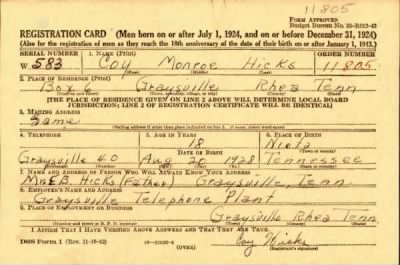 11805
FORM APPROVED
Budget Bureau No. 33-R013-42
REGISTRATION CARD (Men born on or after July 1, 1924, and on or before December 31, 1924)
(Also for the registration of men as they reach the 18th anniversary of the date of their birth on or after January 1, 1943.)
SERIAL NUMBER 1. NAME (Print) ORDER NUMBER
W 583 Coy Monroe Hicks 11805
2. PLACE OF RESIDENCE (Print)
Box 6 Graysville Rhea Tenn
[THE PLACE OF RESIDENCE GIVEN ON LINE 2 ABOVE WILL DETERMINE LOCAL BOARD
JURISDICTION; LINE 2 OF REGISTRATION CERTIFICATE WILL BE IDENTICAL]
3. MAILING ADDRESS
Same
[Mailing address if other than place indicated on line 2. If same, insert word same]
4. TELEPHONE 5. AGE IN YEARS 6. PLACE OF BIRTH
18 Niota
DATE OF BIRTH (Town or county)
Graysville 40 Aug 20 1928 Tennessee
7. NAME AND ADDRESS OF PERSON WHO WILL ALWAYS KNOW YOUR ADDRESS
Mr E.B. Hicks (Father) Graysville, Tenn
8. EMPLOYER'S NAME AND ADDRESS
Graysville Telephone Plant
9. PLACE OF EMPLOYMENT OR BUSINESS
Graysville Rhea Tenn
I AFFIRM THAT I HAVE VERIFIED ABOVE ANSWERS AND THAT THEY ARE TRUE.
DSS Form 1 (Rev. 11-16-42) Coy Hicks